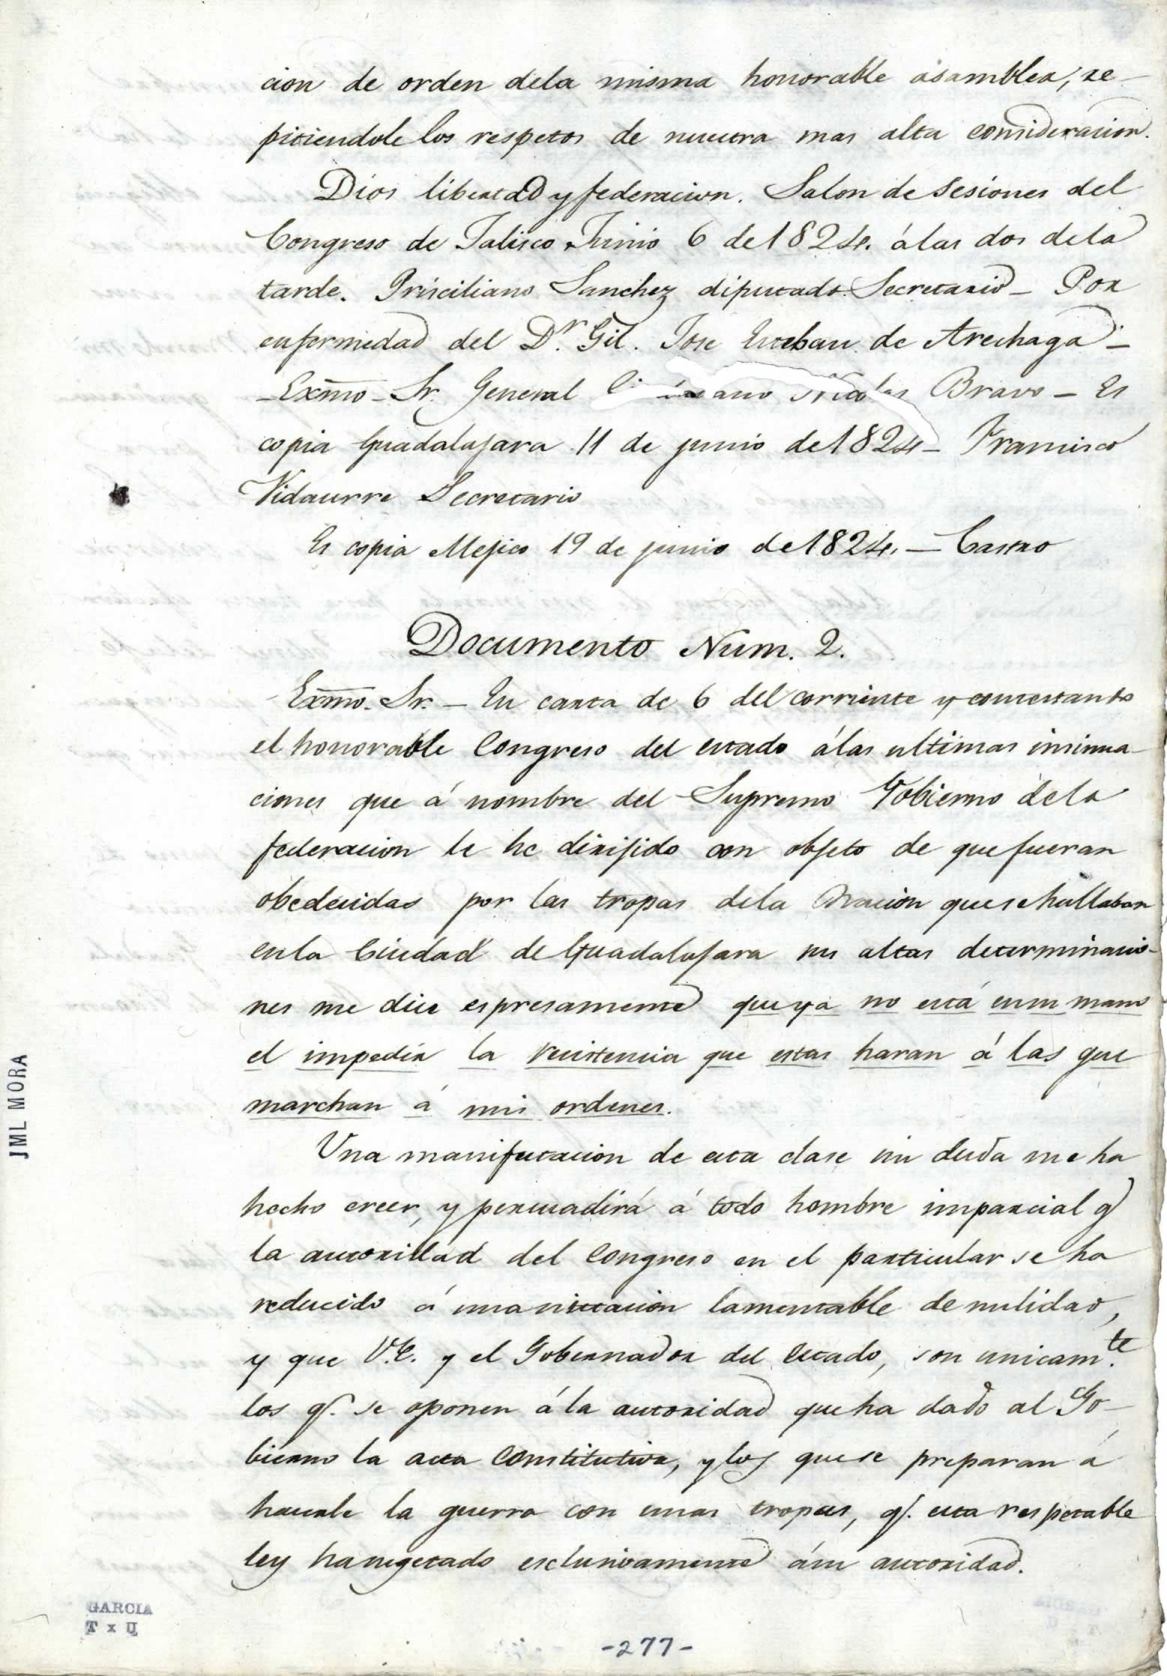 cion de orden dela misma honorable asamblea, re-
pitiendole los respetos de nuestra mas alta consideracion.
Dios libertad y federacion. Salon de Sesiones del
Congreso de Jalisco Junio 6 de 1824. á las dos dela
tarde. Prisciliano Sanchez diputado Secretario - Por
enfermedad del Dr. Gil. Jose Esteban de Arechaga -
- Exmo. Sr. General Nicolas Bravo - Es
copia Guadalajara 11 de junio de 1824 - Francisco
Vidaurre Secretario
Es copia Mejico 19 de junio de 1824. - Castro
Documento Num. 2.
Exmo. Sr. - En carta de 6 del corriente y contestando
el honorable Congreso del estado á las ultimas insinua-
ciones que á nombre del Supremo Gobierno de la
federacion le he dirijido con objeto de que fueran
obedecidas por las tropas dela Nacion que se hallaban
en la Ciudad de Guadalajara sus altas determinacio-
nes me dice espresamente que ya no está en su mano
el impedir la resistencia que estas haran á las que
marchan á mis ordenes.
Una manifestacion de esta clase sin duda me ha
hecho creer, y persuadirá á todo hombre imparcial q
la autoridad del Congreso en el particular se ha
reducido á una situacion lamentable de nulidad,
y que V.E. y el Gobernador del Estado, son unicam.te
los q. se oponen á la autoridad que ha dado al Go-
bierno la acta constitutiva, y los que se preparan á
hacerle la guerra con unas tropas, q. esta respetable
ley ha sugetado esclusivamente á su autoridad.
JML MORA
GARCIA
T x U
-277-